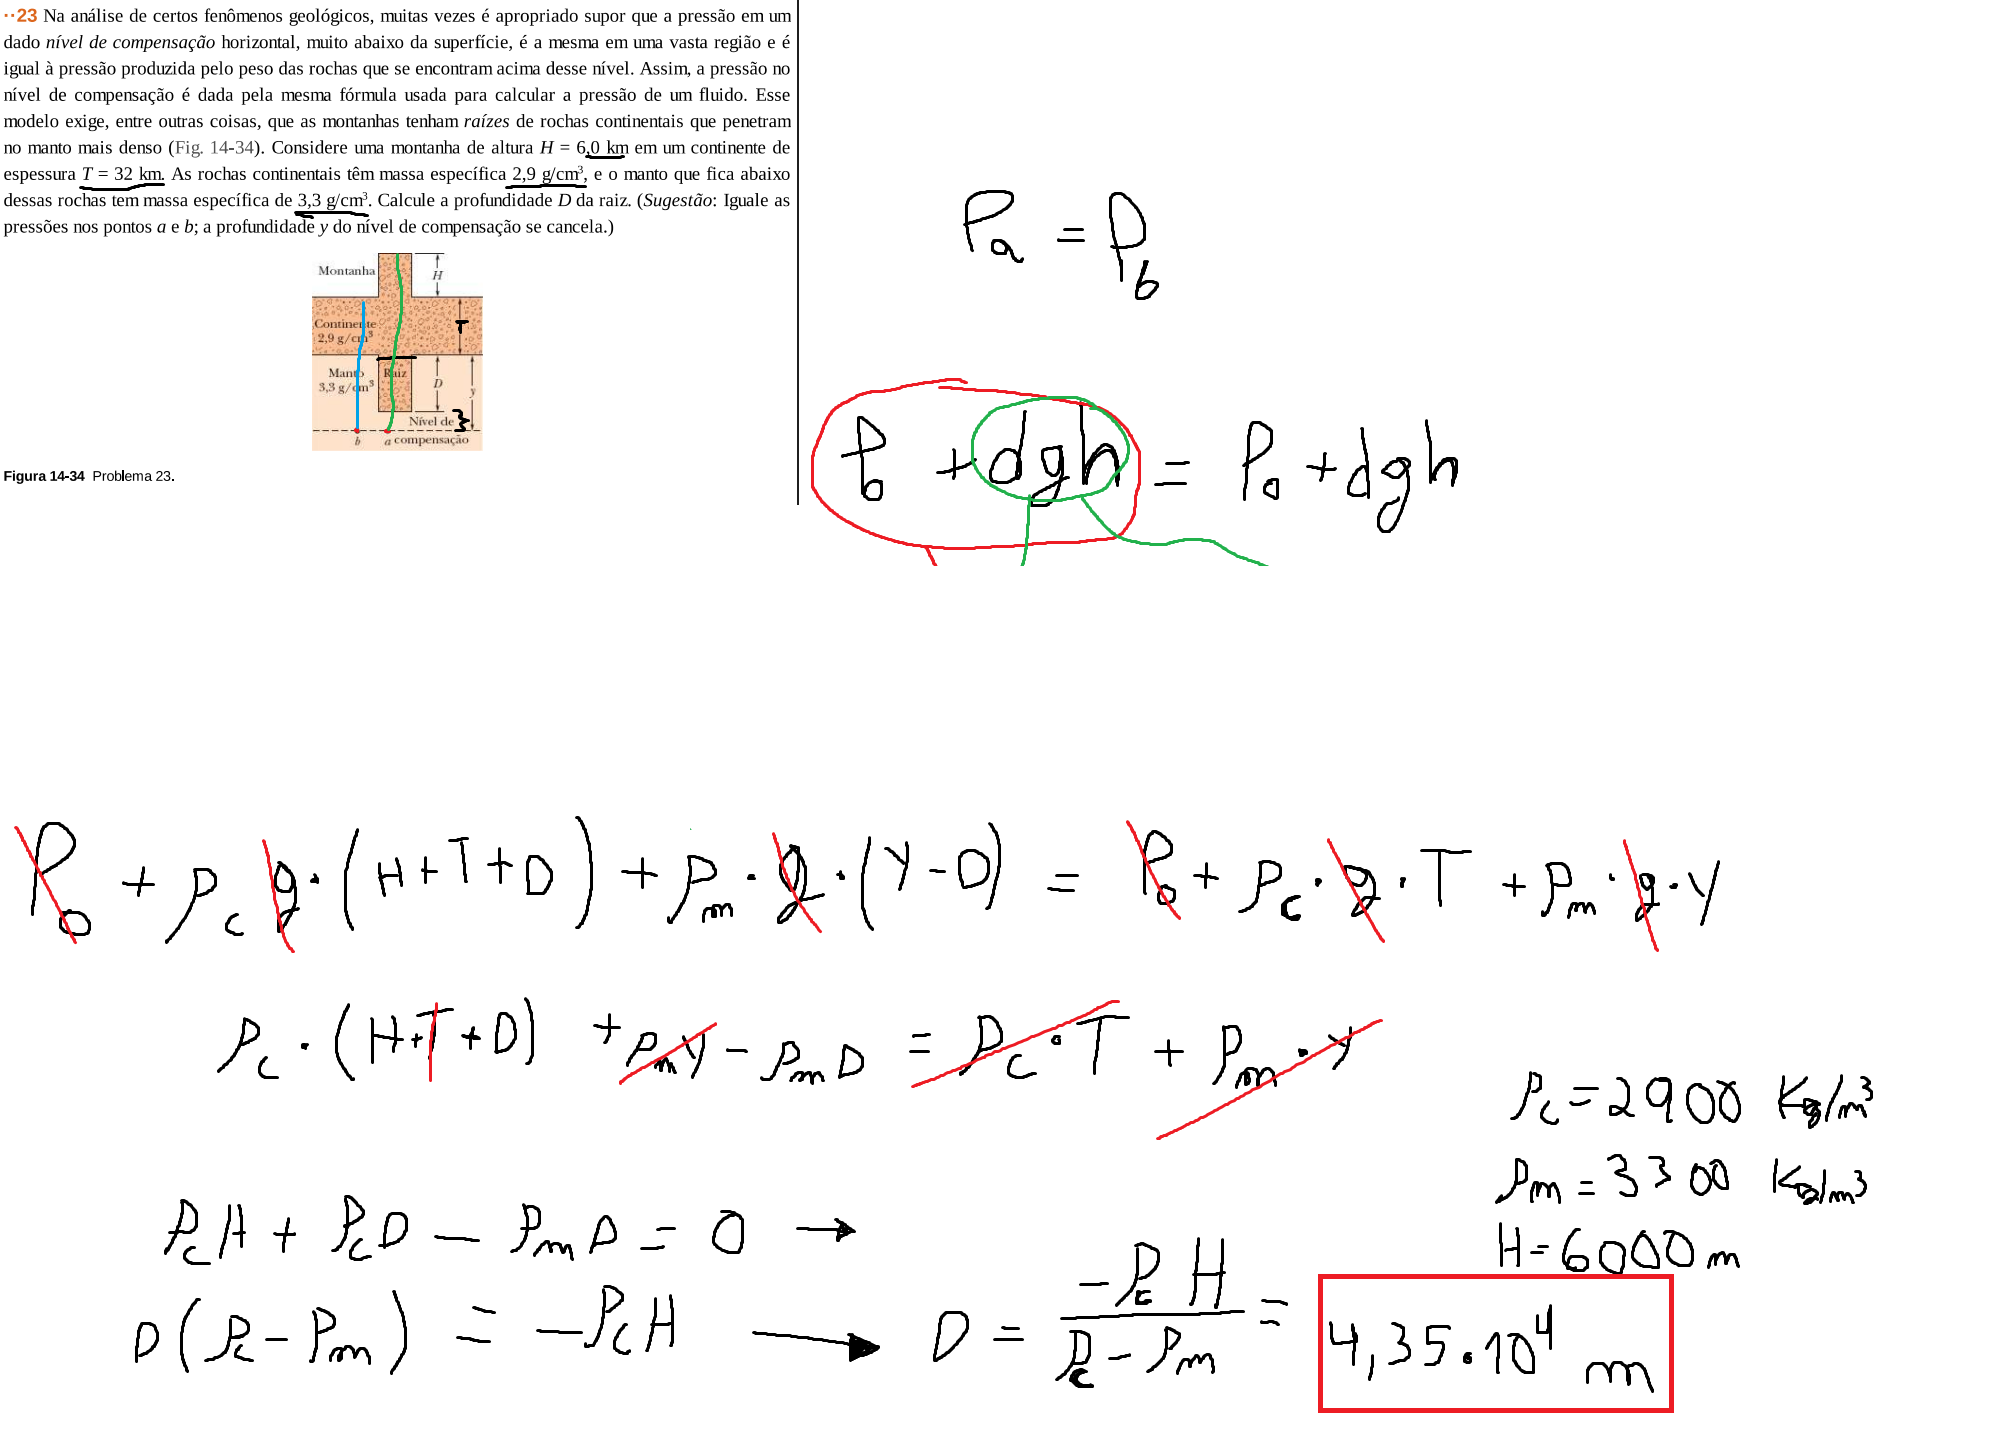 ··23 Na análise de certos fenômenos geológicos, muitas vezes é apropriado supor que a pressão em um
dado nível de compensação horizontal, muito abaixo da superfície, é a mesma em uma vasta região e é
igual à pressão produzida pelo peso das rochas que se encontram acima desse nível. Assim, a pressão no
nível de compensação é dada pela mesma fórmula usada para calcular a pressão de um fluido. Esse
modelo exige, entre outras coisas, que as montanhas tenham raízes de rochas continentais que penetram
no manto mais denso (Fig. 14-34). Considere uma montanha de altura H = 6,0 km em um continente de
espessura T = 32 km. As rochas continentais têm massa específica 2,9 g/cm³, e o manto que fica abaixo
dessas rochas tem massa específica de 3,3 g/cm³. Calcule a profundidade D da raiz. (Sugestão: Iguale as
pressões nos pontos a e b; a profundidade y do nível de compensação se cancela.)
Montanha
H
Continente
2,9 g/cm³
T
Manto
3,3 g/cm³
Raiz
D
y
Nível de
compensação
b
a
Figura 14-34 Problema 23.
Pa = Pb
P0 + dgh = P0 + dgh
P0 + ρc g · (H + T + D) + ρm · g · (Y - D) = P0 + ρc · g · T + ρm · g · Y
ρc · (H + T + D) + ρm Y - ρm D = ρc · T + ρm · Y
ρc = 2900 Kg/m³
ρm = 3300 Kg/m³
H = 6000 m
ρc H + ρc D - ρm D = 0 →
D (ρc - ρm) = -ρc H → D = -ρc H / ρc - ρm = 4,35 · 10⁴ m